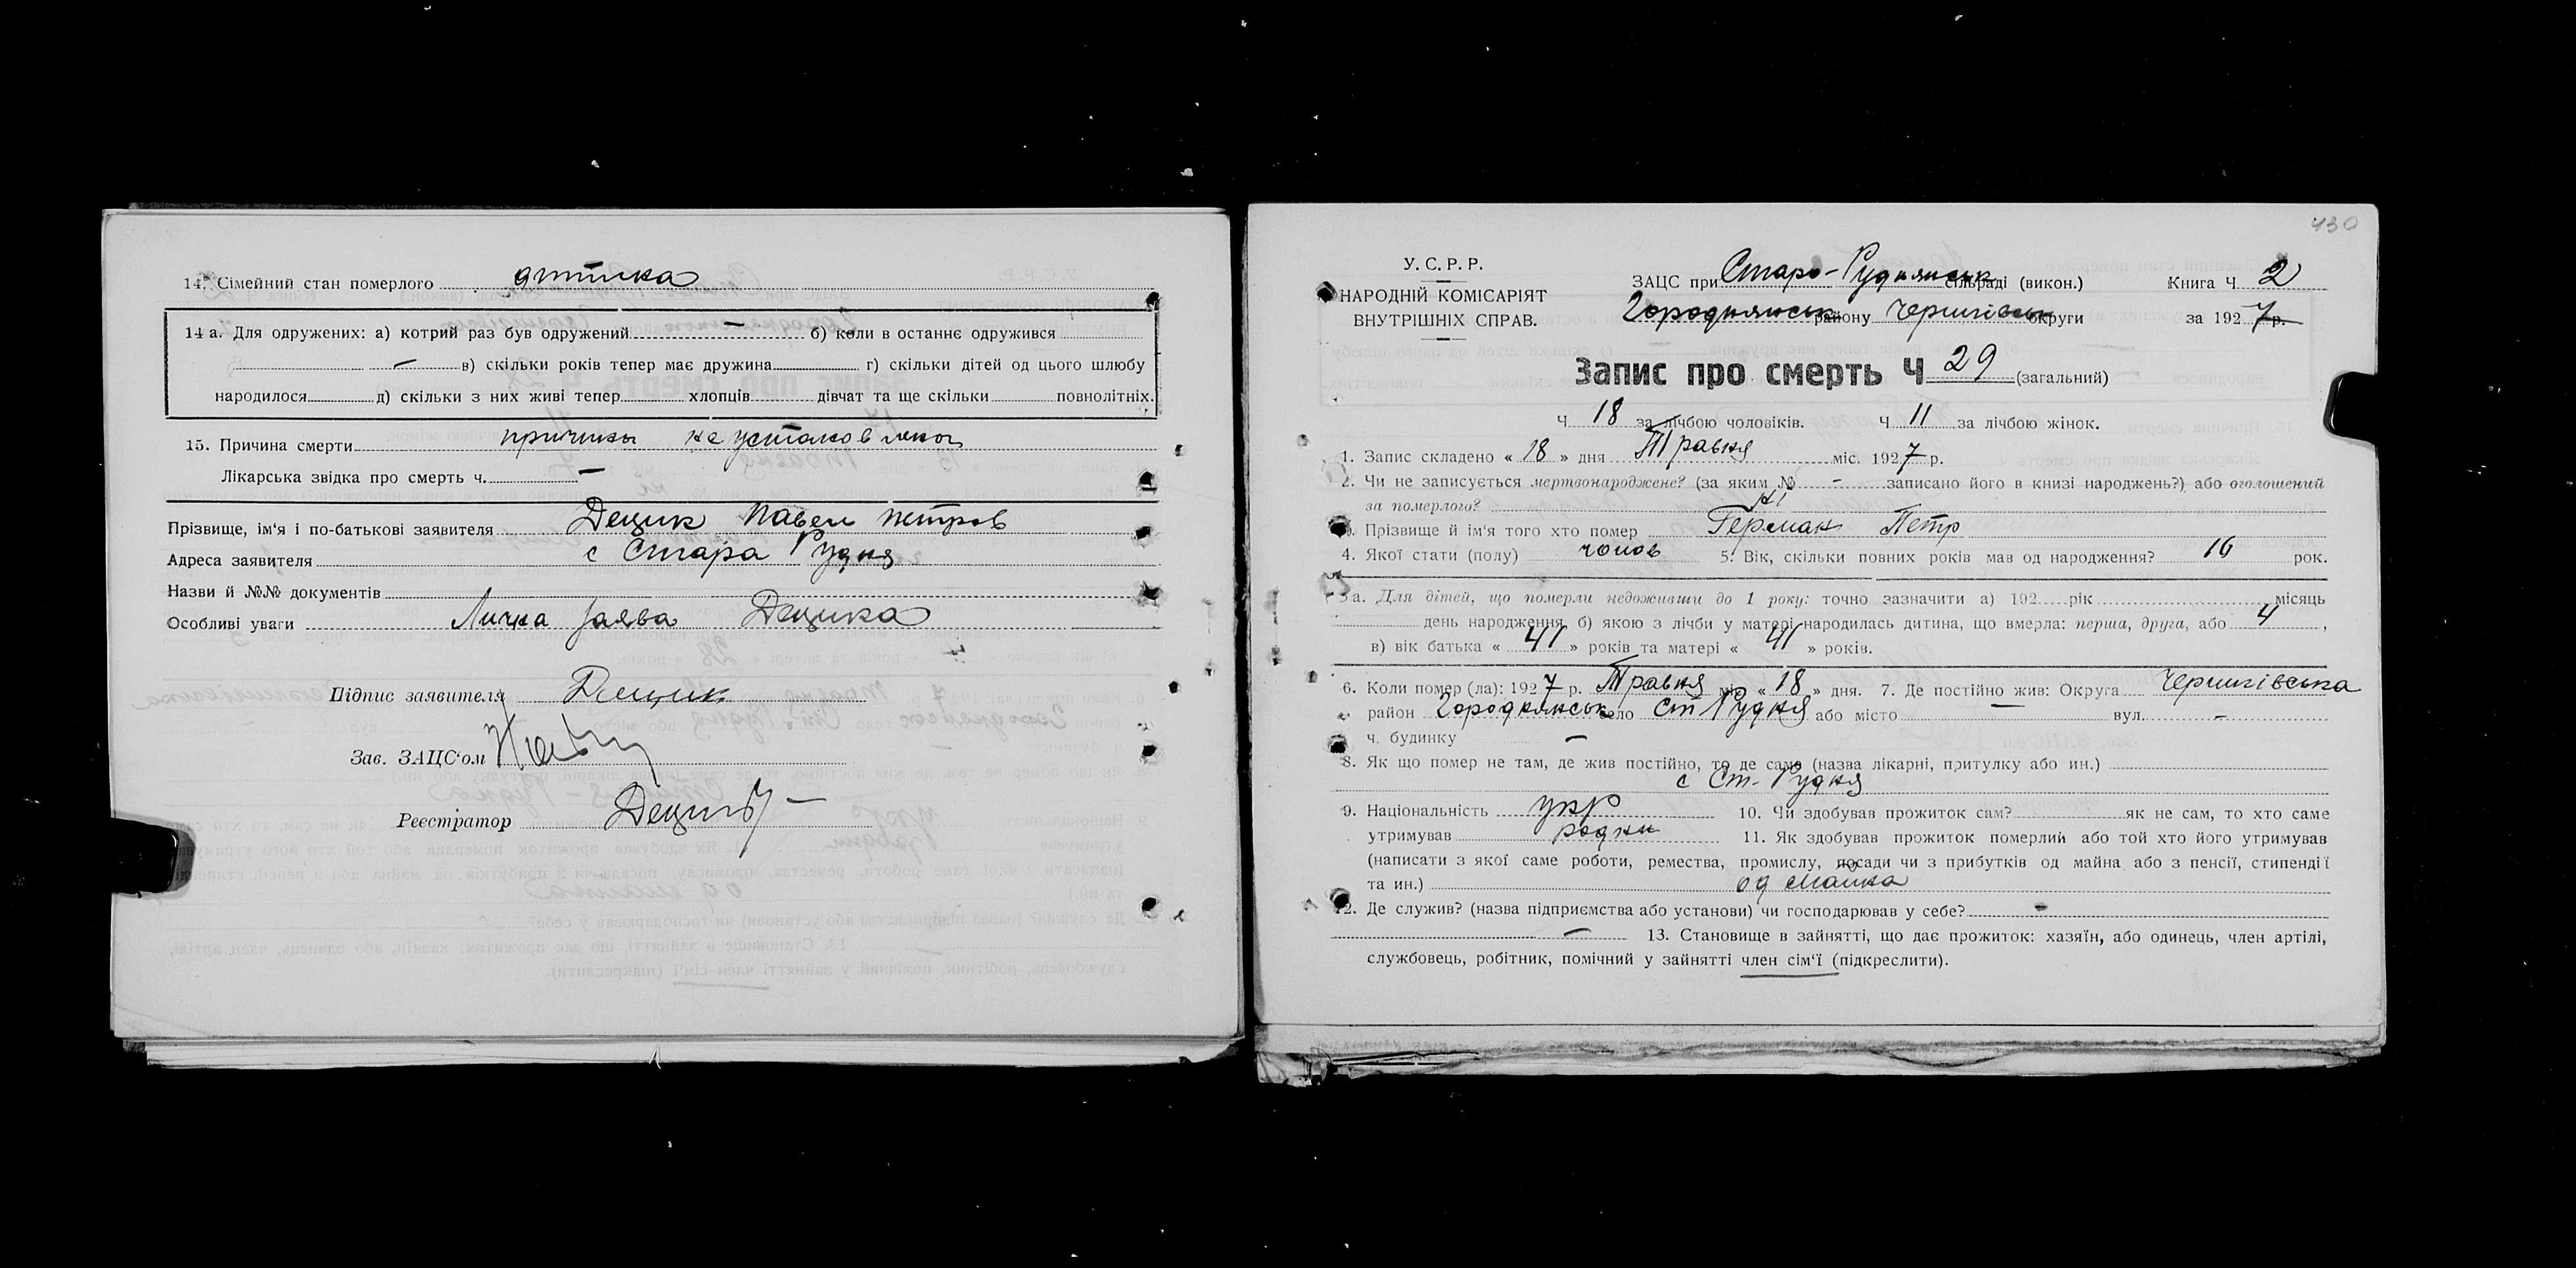 14. Сімейний стан померлого дитина
14 а. Для одружених: а) котрий раз був одружений — б) коли в останнє одружився
— в) скільки років тепер має дружина г) скільки дітей од цього шлюбу
народилося д) скільки з них живі тепер хлопців дівчат та ще скільки повнолітніх.
15. Причина смерти причини не установлено
Лікарська звідка про смерть ч. —
Прізвище, ім'я і по-батькові заявителя Децик Павел Петров
Адреса заявителя с Стара Рудня
Назви й №№ документів
Особливі уваги Лична заява Децика
Підпис заявителя Децик
Зав. ЗАЦС'ом
Реєстратор
430
У. С. Р. Р.
НАРОДНІЙ КОМІСАРІЯТ
ВНУТРІШНІХ СПРАВ.
ЗАЦС при Старо-Руднянськ сільраді (викон.) Книга Ч 2
Городнянськ району Чернигівськ округи за 1927 р.
Запис про смерть Ч 29 (загальний)
Ч 18 за лічбою чоловіків. Ч 11 за лічбою жінок.
1. Запис складено « 18 » дня Травня міс. 1927 р.
2. Чи не записується мертвонароджене? (за яким № - записано його в книзі народжень?) або оголошений
за померлого? Ні
3. Прізвище й ім'я того хто помер Герман Петр
4. Якої стати (полу) чолов 5. Вік, скільки повних років мав од народження? 16 рок.
5а. Для дітей, що померли недоживши до 1 року: точно зазначити а) 192 рік місяць
день народження б) якою з лічби у матері народилась дитина, що вмерла: перша, друга, або 4,
в) вік батька « 41 » років та матері « 41 » років.
6. Коли помер (ла): 1927 р. Травня міс « 18 » дня. 7. Де постійно жив: Округа Чернигівська
район Городнянськ село Ст Рудня або місто — вул. —
ч. будинку —
8. Як що помер не там, де жив постійно, то де саме (назва лікарні, притулку або ин.)
с Ст. Рудня
9. Національність укр 10. Чи здобував прожиток сам? як не сам, то хто саме
утримував родни 11. Як здобував прожиток померлий або той хто його утримував
(написати з якої саме роботи, ремества, промислу, посади чи з прибутків од майна або з пенсії, стипендії
та ин.) од майна
12. Де служив? (назва підприємства або установи) чи господарював у себе? -
— 13. Становище в зайнятті, що дає прожиток: хазяїн, або одинець, член артілі,
службовець, робітник, помічний у зайнятті член сім'ї (підкреслити).